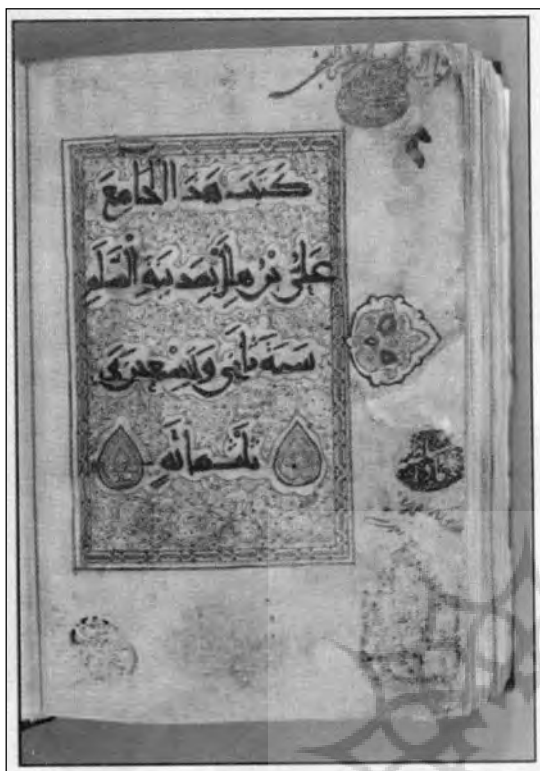 كتب هذا الجامع
على بن هلال بمدينة السلم
سنة ثاني وتسعين و
ثلثمائة